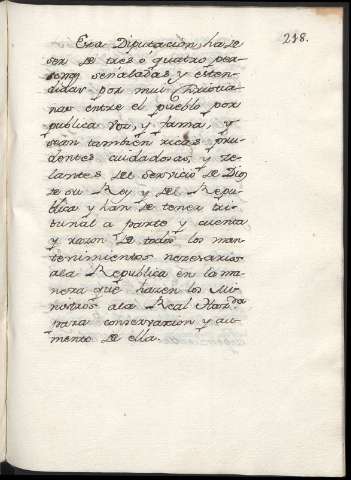 218.
Esta Diputación ha de
ser de tres ó quatro per
sonas señaladas, y esten
didas por mui Christia
nas entre el pueblo por
publica voz, y fama, y
sean tambien ricas, pru
dentes cuidadosas, y ze
lantes del servicio de Dios
de su Rey y del Repu
blica y han de tener tri
bunal a parte y cuenta
y razon de todos los man
tenimientos necesarios
ala Republica en la ma
nera que hazen los Mi
nistros ala Real Haz.da
para conservacion y au
mento de ella.